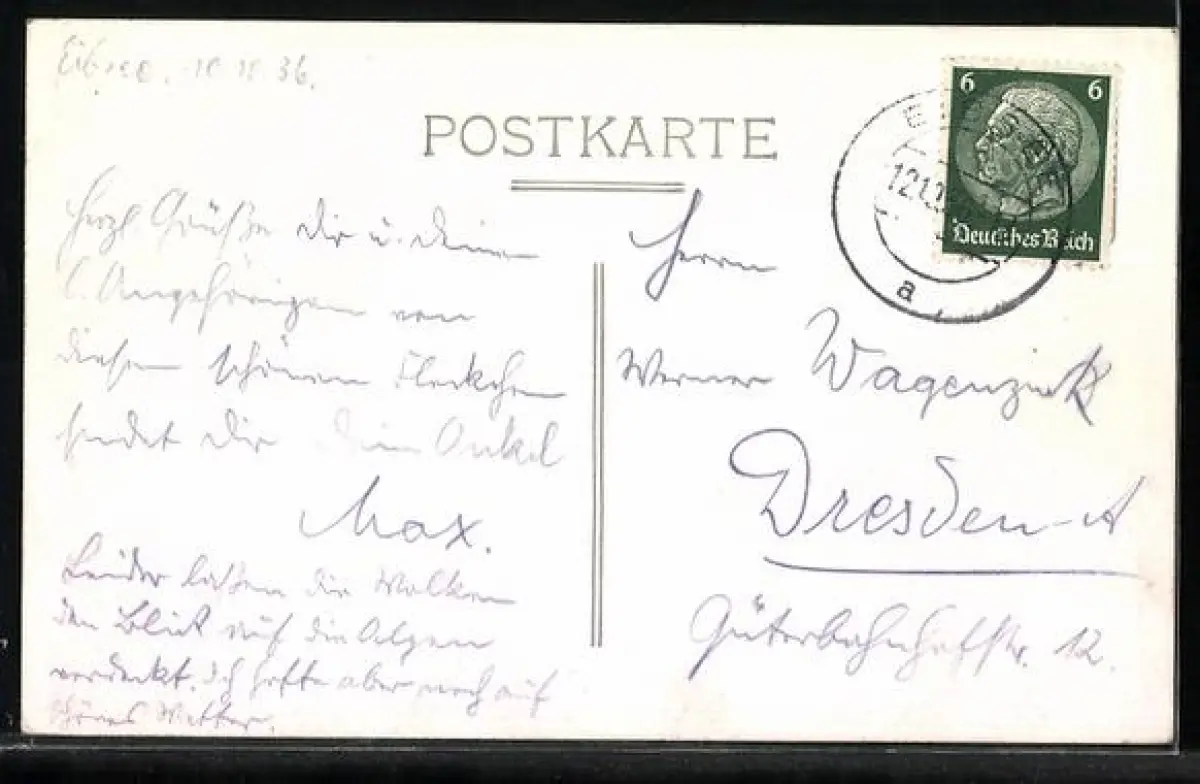 Eibsee. 10.10.36.
POSTKARTE
6 6
Deutsches Reich
a
Herzl. Grüße Dir u. Deinen
l. Angehörigen von
diesem schönen Fleckchen
sendet Dir Dein Onkel
Max.
Leider haben die Wolken
den Blick auf die Alpen
verdeckt. Ich hoffe aber noch auf
schönes Wetter.
Herrn
Werner Wagenzink
Dresden-A
Güterbahnhofstr. 12.